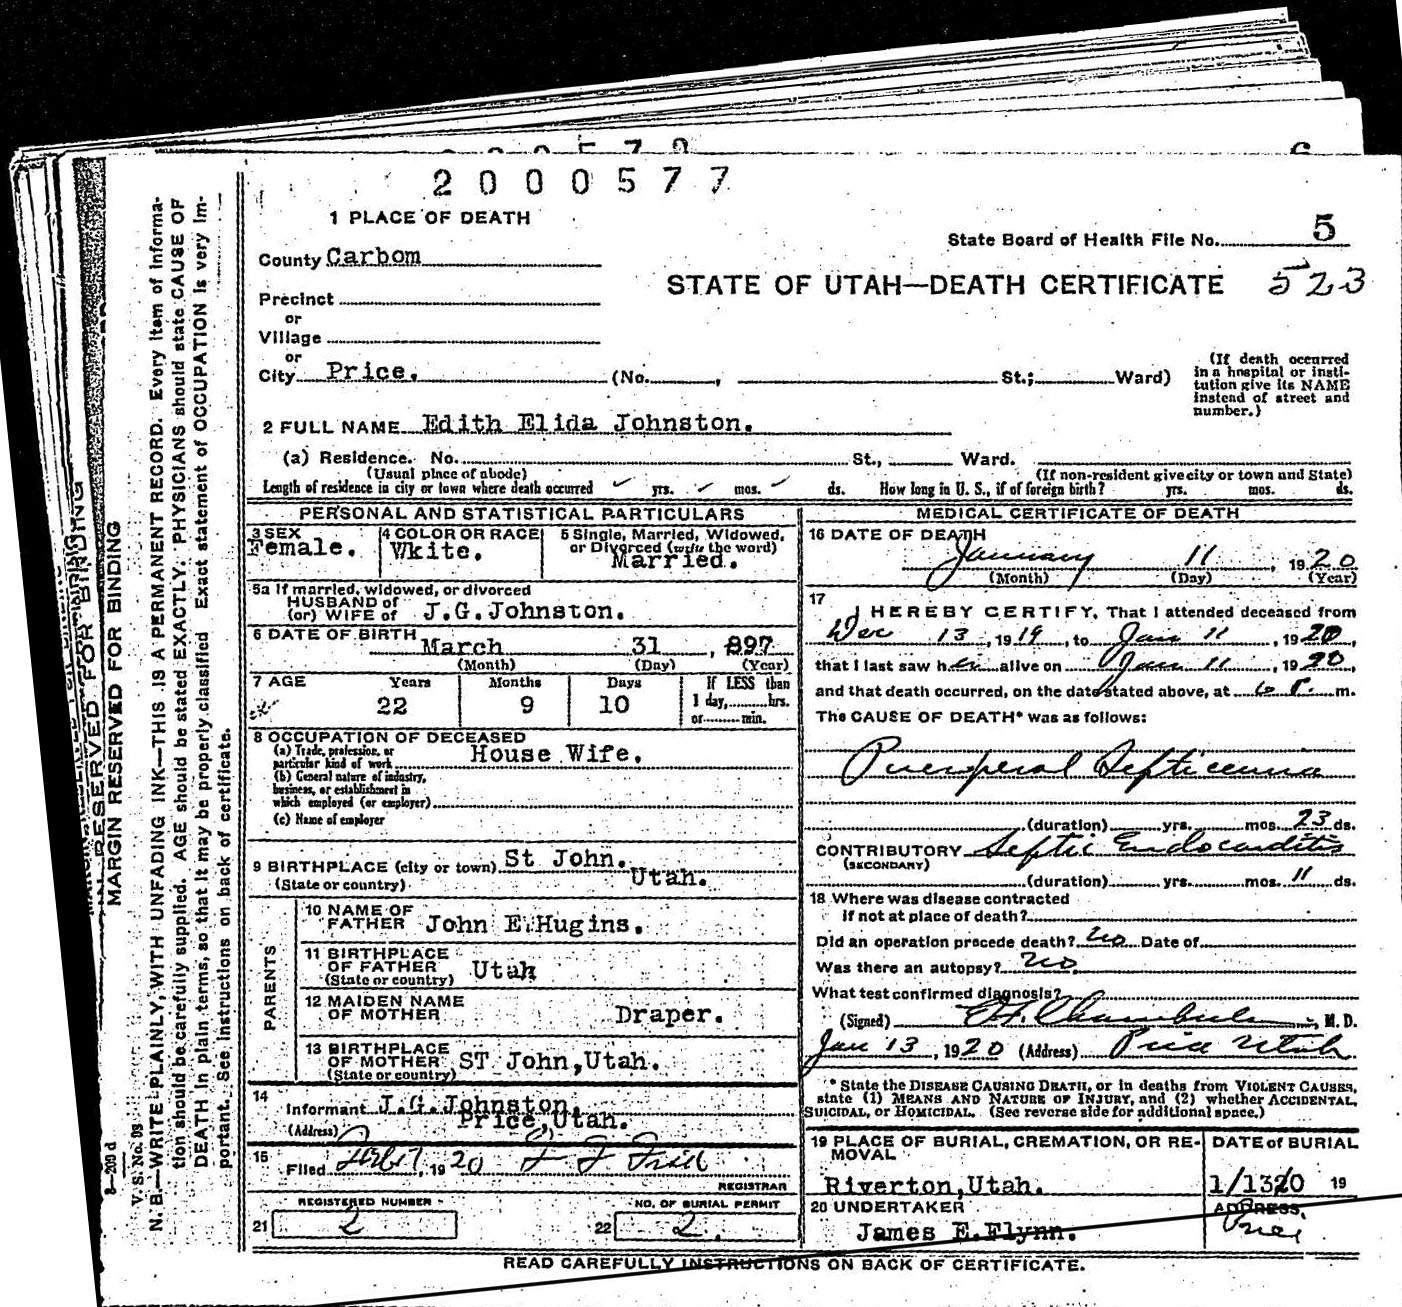 2000577
1 PLACE OF DEATH
State Board of Health File No. 5
County Carbom
STATE OF UTAH—DEATH CERTIFICATE 523
Precinct
or
Village
or
City Price. (No. , St.; Ward)
(If death occurred in a hospital or institution give its NAME instead of street and number.)
2 FULL NAME Edith Elida Johnston.
(a) Residence. No. St., Ward.
(Usual place of abode) (If non-resident give city or town and State)
Length of residence in city or town where death occurred yrs. mos. ds. How long in U. S., if of foreign birth? yrs. mos. ds.
PERSONAL AND STATISTICAL PARTICULARS
3 SEX Female.
4 COLOR OR RACE Wkite.
5 Single, Married, Widowed, or Divorced (write the word) Married.
5a If married, widowed, or divorced
HUSBAND of
(or) WIFE of J.G.Johnston.
6 DATE OF BIRTH March 31 , 897
(Month) (Day) (Year)
7 AGE Years Months Days If LESS than
22 9 10 1 day, hrs.
or min.
8 OCCUPATION OF DECEASED
(a) Trade, profession, or particular kind of work House Wife.
(b) General nature of industry, business, or establishment in which employed (or employer)
(c) Name of employer
9 BIRTHPLACE (city or town) St John.
(State or country) Utah.
PARENTS
10 NAME OF FATHER John E.Hugins.
11 BIRTHPLACE OF FATHER (State or country) Utah
12 MAIDEN NAME OF MOTHER Draper.
13 BIRTHPLACE OF MOTHER (State or country) ST John,Utah.
14
Informant J.G.Johnston.
(Address) Price,Utah.
15
Filed , 1920
REGISTRAR
REGISTERED NUMBER NO. OF BURIAL PERMIT
21 2 22 2.
MEDICAL CERTIFICATE OF DEATH
16 DATE OF DEATH
January 11 , 1920
(Month) (Day) (Year)
17
I HEREBY CERTIFY, That I attended deceased from
Dec 13 , 1919 , to Jan 11 , 1920,
that I last saw her alive on Jan 11 , 1920,
and that death occurred, on the date stated above, at 6 P. m.
The CAUSE OF DEATH* was as follows:
Puerperal Septicemia
(duration) yrs. mos. 23 ds.
CONTRIBUTORY Septic Endocarditis
(SECONDARY)
(duration) yrs. mos. 11 ds.
18 Where was disease contracted
if not at place of death?
Did an operation precede death? no Date of
Was there an autopsy? no
What test confirmed diagnosis?
(Signed) , M. D.
Jan 13 , 1920 (Address) Price Utah
* State the DISEASE CAUSING DEATH, or in deaths from VIOLENT CAUSES,
state (1) MEANS AND NATURE OF INJURY, and (2) whether ACCIDENTAL,
SUICIDAL, or HOMICIDAL. (See reverse side for additional space.)
19 PLACE OF BURIAL, CREMATION, OR REMOVAL DATE of BURIAL
Riverton,Utah. 1/13/20 19
20 UNDERTAKER ADDRESS,
James E.Flynn. Price
READ CAREFULLY INSTRUCTIONS ON BACK OF CERTIFICATE.
MARGIN RESERVED FOR BINDING
V. S. No.
N. B.—WRITE PLAINLY, WITH UNFADING INK—THIS IS A PERMANENT RECORD. Every item of information should be carefully supplied. AGE should be stated EXACTLY. PHYSICIANS should state CAUSE OF DEATH in plain terms, so that it may be properly classified. Exact statement of OCCUPATION is very important. See instructions on back of certificate.